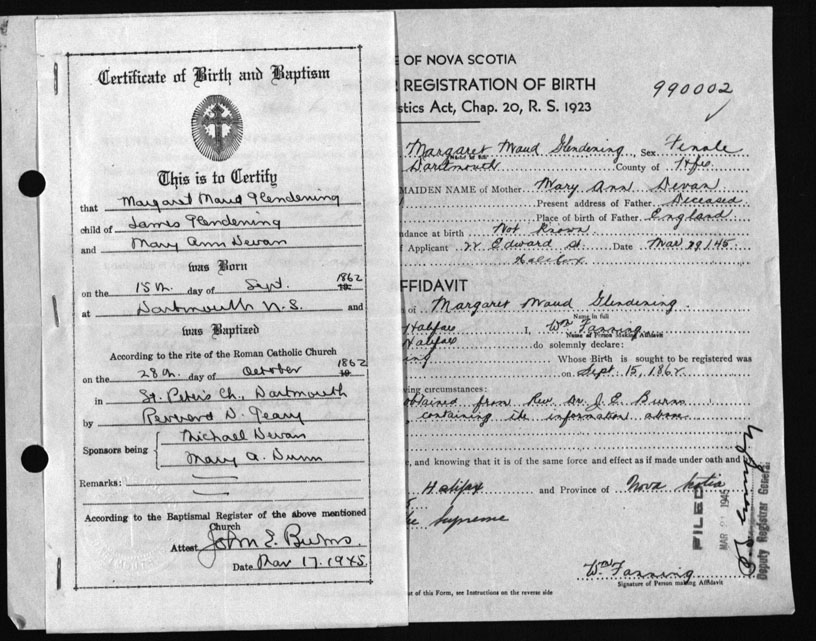 Certificate of Birth and Baptism
This is to Certify
that Margaret Maud Glendening
child of James Glendening
and Mary Ann Devan
was Born
on the 15th day of Sept. 1862
at Dartmouth N.S. and
was Baptized
According to the rite of the Roman Catholic Church
on the 28th day of October 1862
in St. Peter's Ch., Dartmouth
by Reverend D. Geary
Sponsors being Michael Devan
Mary A. Dunn
Remarks:
According to the Baptismal Register of the above mentioned
Church
Attest John E. Burns
Date Mar 17. 1945
E OF NOVA SCOTIA
REGISTRATION OF BIRTH
stics Act, Chap. 20, R. S. 1923
990002
Margaret Maud Glendening, Sex Female
Dartmouth County of Hfx
MAIDEN NAME of Mother Mary Ann Devan
Present address of Father Deceased
Place of birth of Father England
dance at birth Not Known
f Applicant 22 Edward St. Date Mar 29/45
Halifax
FFIDAVIT
of Margaret Maud Glendening
Name in full
Halifax I, Wm Fanning
Name of Person Making Affidavit
Halifax do solemnly declare:
ing Whose Birth is sought to be registered was
on Sept. 15, 1862
ing circumstances:
obtained from Rev. Dr. J. E. Burns
containing the information above
, and knowing that it is of the same force and effect as if made under oath and
Halifax and Province of Nova Scotia
the Supreme
FILED
MAR 1945
Deputy Registrar General
Wm Fanning
Signature of Person making Affidavit
t of this Form, see Instructions on the reverse side